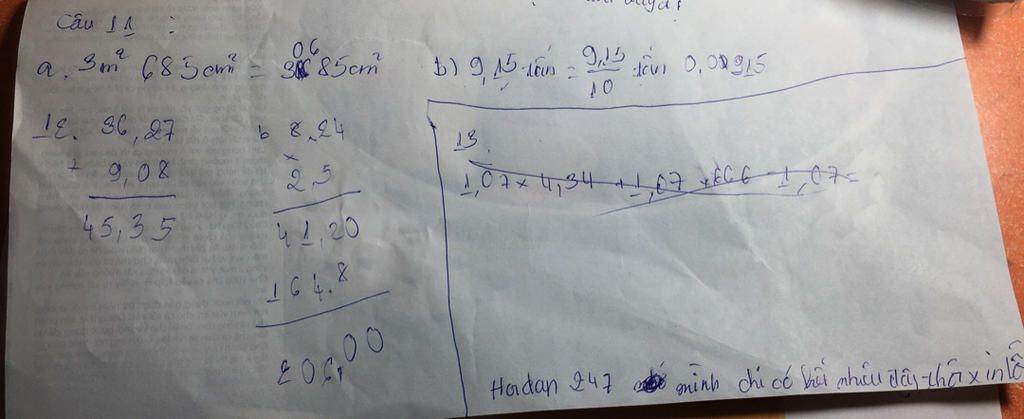 Câu 11 :
a. 3m² 685cm² = 30685cm²
b) 9,15 tấn = 9,15/10 tấn 0,0915
12. 36,27
+ 9,08
45,35
b 8,24
×
2,5
41,20
164,8
206,00
13.
1,07 × 4,34 + 1,07 × 66 - 1,07 =
Hoidan 247 mình chỉ có bấi nhiêu đây thôi xin lỗi